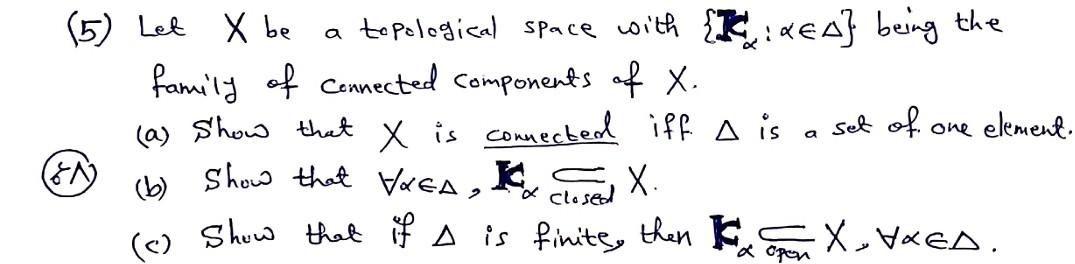 (5) Let X be a topological space with {K_α : α ∈ Δ} being the
family of connected components of X.
(a) Show that X is connected iff Δ is a set of one element.
(b) Show that ∀α∈Δ, K_α ⊆ closed X.
(c) Show that if Δ is finite, then K_α ⊆ open X, ∀α∈Δ.